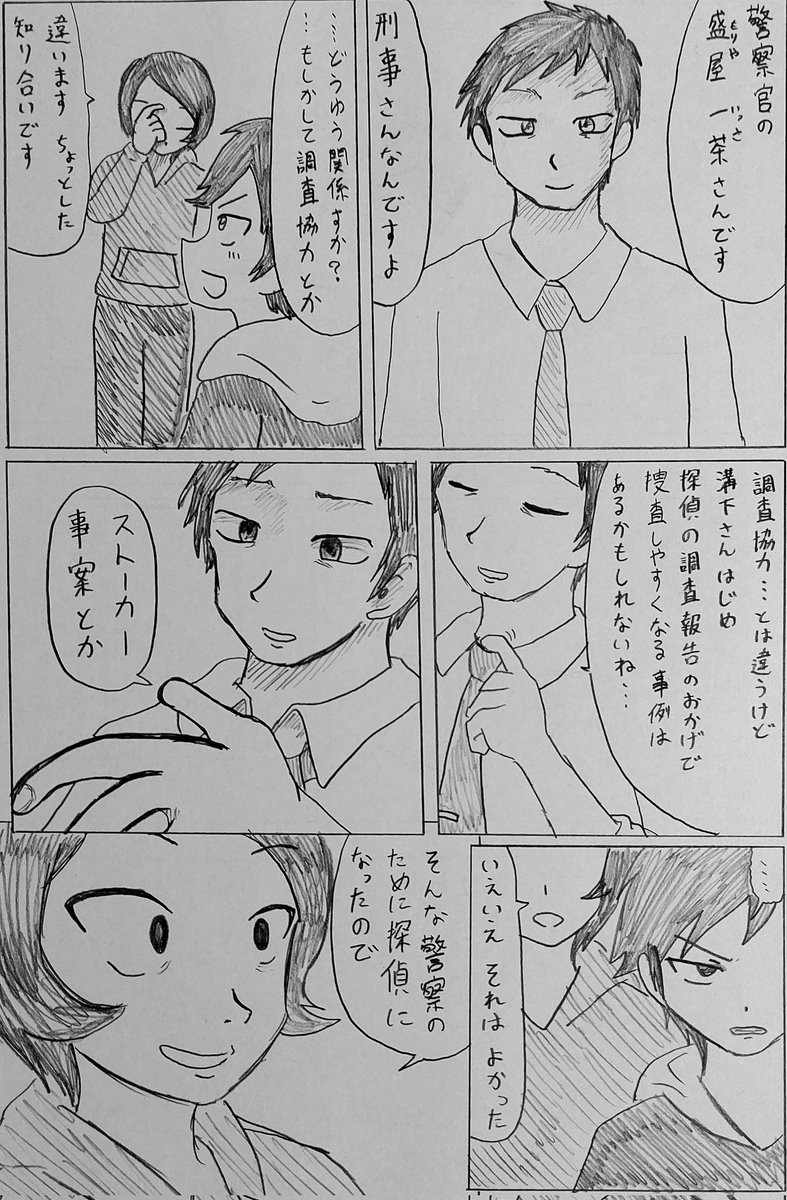 警察官の
盛屋 一茶さんです
もりや いっさ
刑事さんなんですよ
…どうゆう関係すか?
…もしかして調査協力とか
違います ちょっとした
知り合いです
調査協力…とは違うけど
溝下さんはじめ
探偵の調査報告のおかげで
捜査しやすくなる事例は
あるかもしれないね…
ストーカー
事案とか
……
いえいえ それは よかった
そんな警察の
ために探偵に
なったので